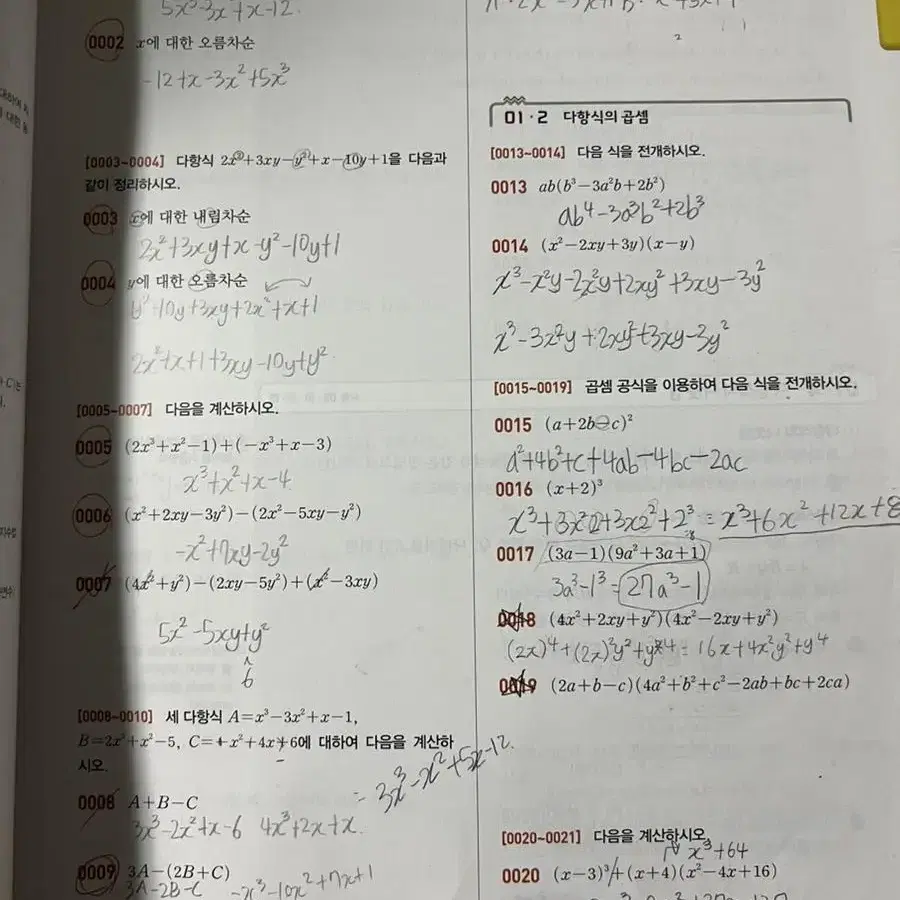 5x³-3x²+x-12
0002 x에 대한 오름차순
-12+x-3x²+5x³
[0003~0004] 다항식 2x²+3xy-y²+x-10y+1을 다음과
같이 정리하시오.
0003 x에 대한 내림차순
2x²+3xy+x-y²-10y+1
0004 y에 대한 오름차순
y²-10y+3xy+2x²+x+1
2x²+x+1+3xy-10y+y²
[0005~0007] 다음을 계산하시오.
0005 (2x³+x²-1)+(-x³+x-3)
x³+x²+x-4
0006 (x²+2xy-3y²)-(2x²-5xy-y²)
-x²+7xy-2y²
0007 (4x²+y²)-(2xy-5y²)+(x²-3xy)
5x²-5xy+y²
6
[0008~0010] 세 다항식 A=x³-3x²+x-1,
B=2x³+x²-5, C=+x²+4x+6에 대하여 다음을 계산하
시오.
=3x³-x²+5x-12.
0008 A+B-C
3x³-2x²+x-6 4x³+2x+x
0009 3A-(2B+C)
3A-2B-C -x³-10x²+7x+1
01·2 다항식의 곱셈
[0013~0014] 다음 식을 전개하시오.
0013 ab(b³-3a²b+2b²)
ab⁴-3a³b²+2b³
0014 (x²-2xy+3y)(x-y)
x³-x²y-2x²y+2xy²+3xy-3y²
x³-3x²y+2xy²+3xy-3y²
[0015~0019] 곱셈 공식을 이용하여 다음 식을 전개하시오.
0015 (a+2b-c)²
a²+4b²+c+4ab-4bc-2ac
0016 (x+2)³
x³+3x²2+3x2²+2³=x³+6x²+12x+8
0017 (3a-1)(9a²+3a+1)
3a³-1³=27a³-1
0018 (4x²+2xy+y²)(4x²-2xy+y²)
(2x)⁴+(2x)²y²+y⁴=16x+4x²y²+y⁴
0019 (2a+b-c)(4a²+b²+c²-2ab+bc+2ca)
[0020~0021] 다음을 계산하시오.
x³+64
0020 (x-3)³+(x+4)(x²-4x+16)